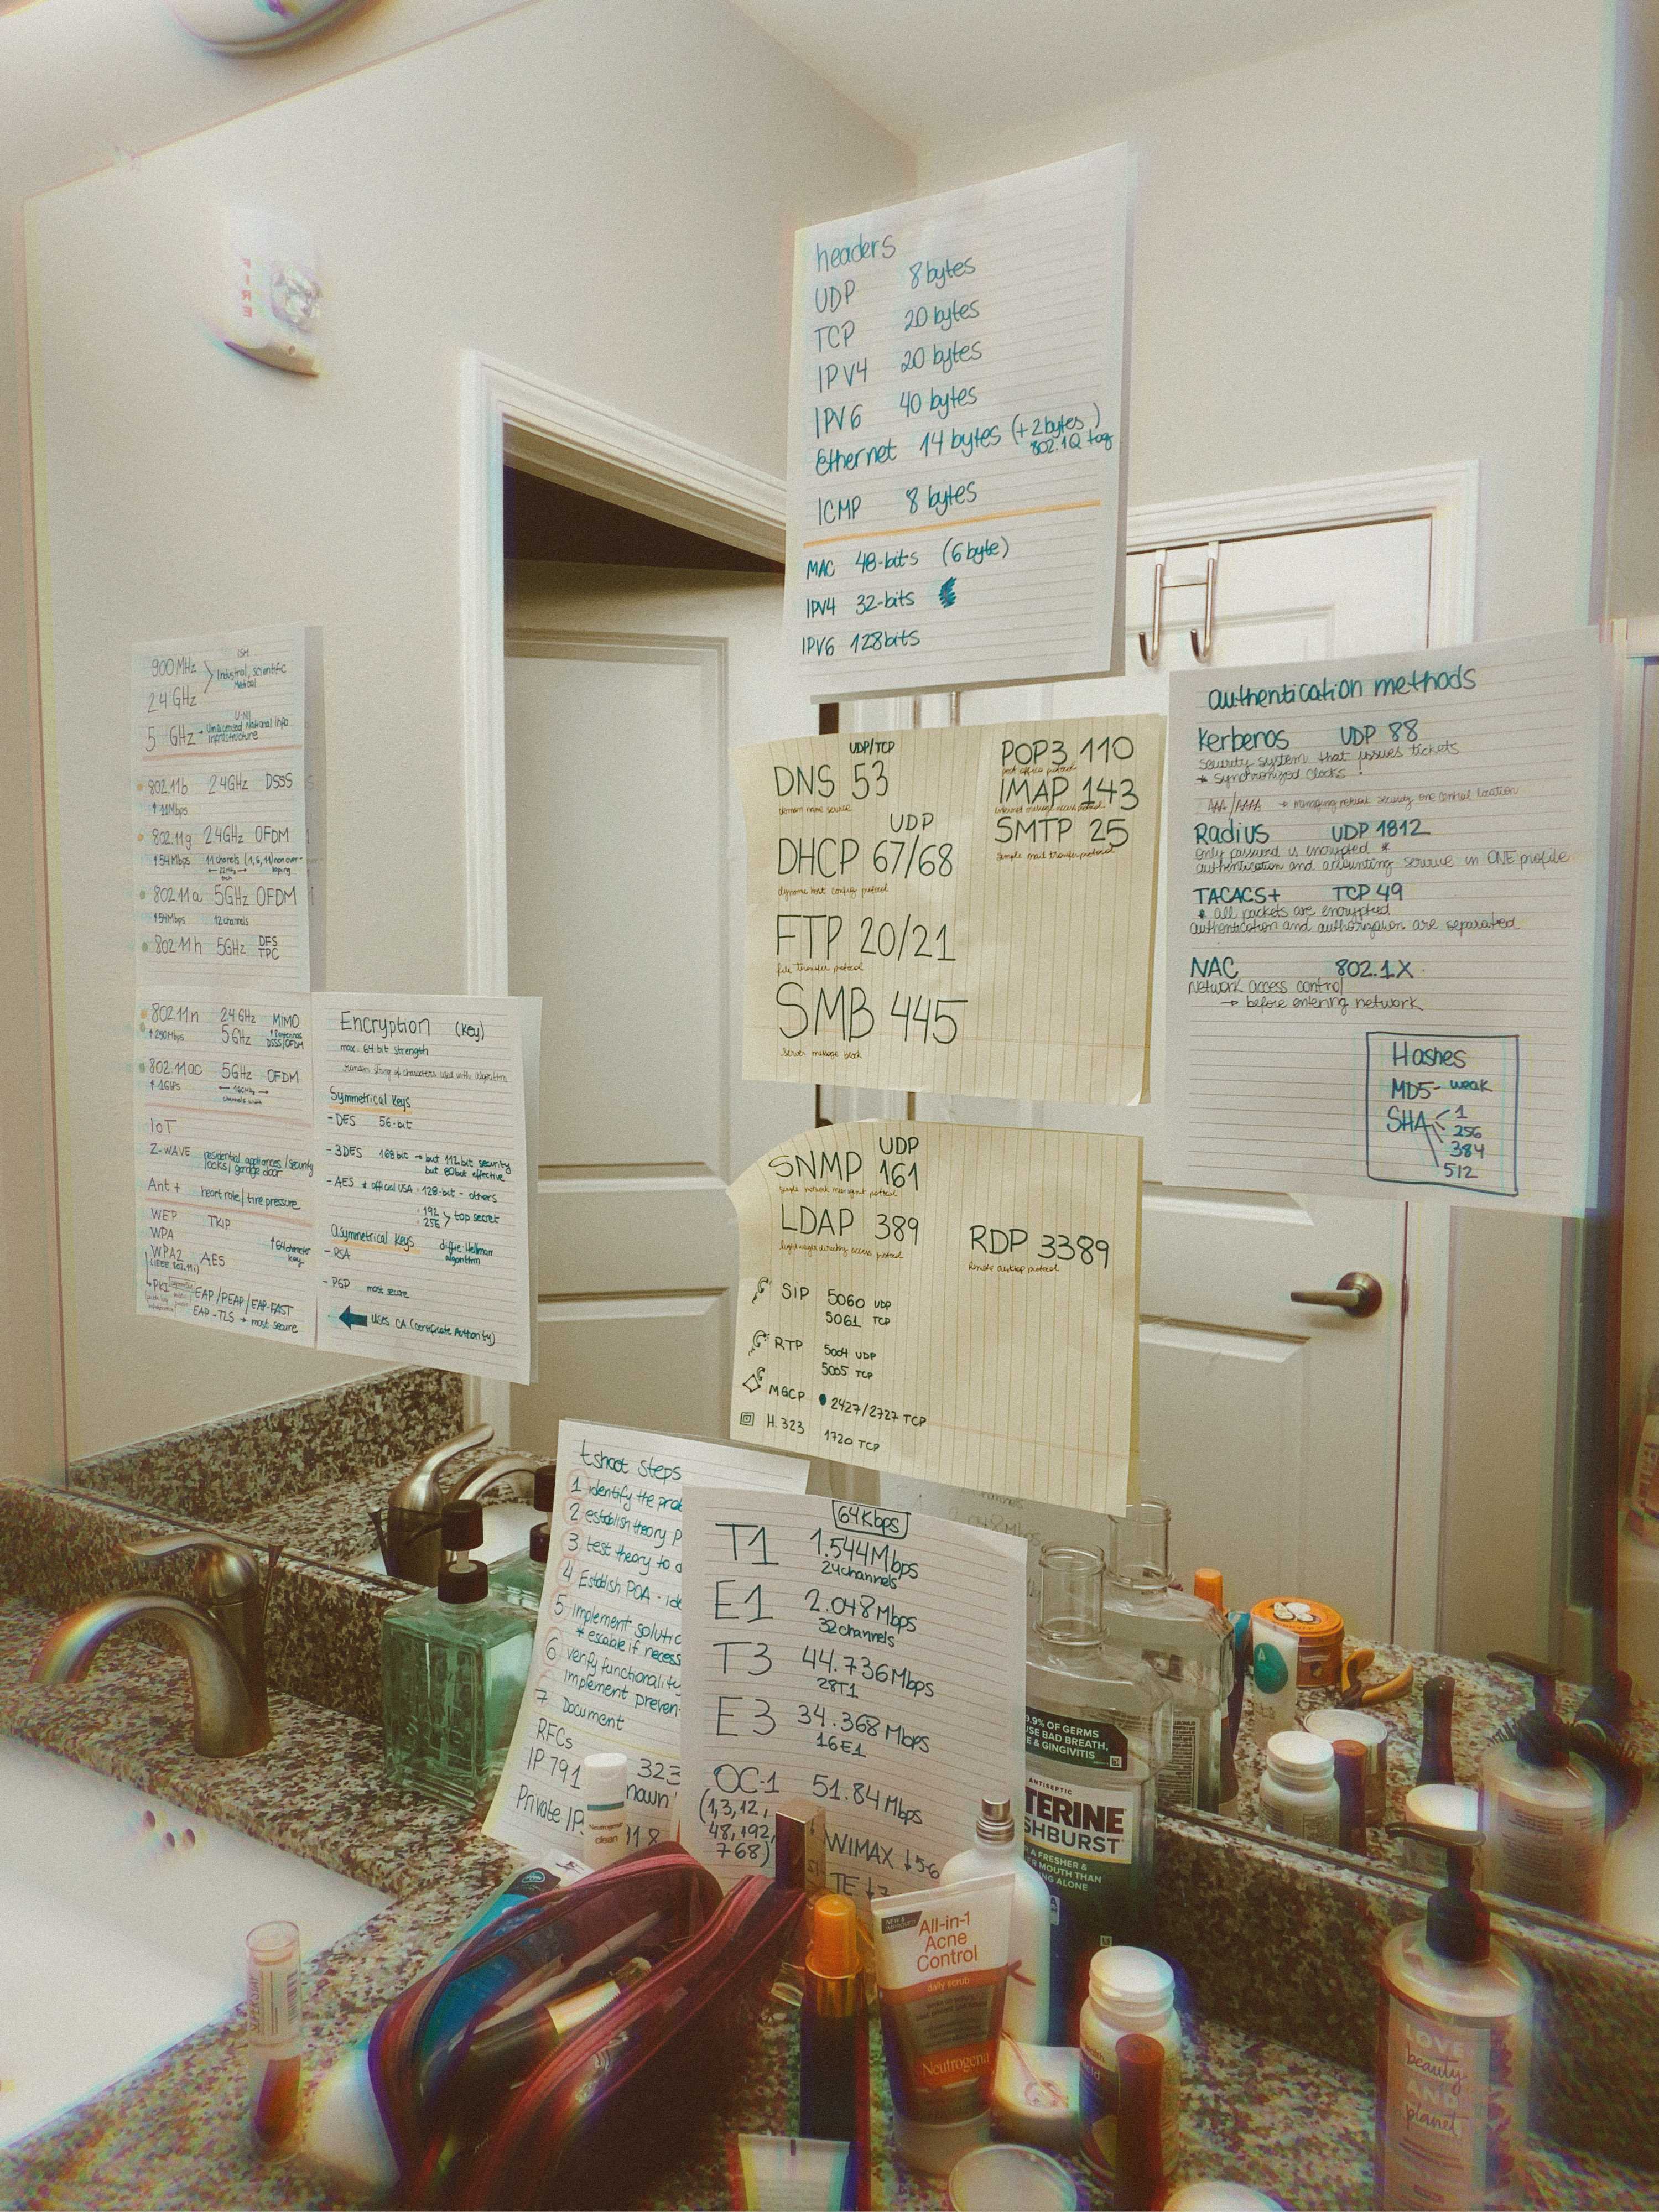 FIRE
headers
UDP 8 bytes
TCP 20 bytes
IPV4 20 bytes
IPV6 40 bytes
Ethernet 14 bytes (+2 bytes)
802.1Q tag
ICMP 8 bytes
MAC 48-bits (6 byte)
IPV4 32-bits
IPV6 128 bits
900 MHz
ISM
Industrial, scientific
Medical
2.4 GHz
5 GHz
U-NII
Unlicensed National Info
Infrastructure
802.11b 2.4GHz DSSS
↑11Mbps
802.11g 2.4GHz OFDM
↑54Mbps 11 chanels (1, 6, 11) non over-
802.11a 5GHz OFDM
↑54Mbps 12 channels
802.11h 5GHz DFS
TPC
802.11n 2.4GHz MIMO
5GHz
DSSS/OFDM
802.11ac 5GHz OFDM
↑1Gbps
IoT
Z-WAVE residential appliances/security
locks/garage door
Ant+ heart rate/tire pressure
WEP
WPA TKIP
WPA2 AES
(IEEE 802.11i)
↑64 character
key
PKI
EAP/PEAP/EAP-FAST
EAP-TLS → most secure
Encryption (key)
max. 64 bit strength
random string of characters used with algorithm
Symmetrical Keys
-DES 56-bit
-3DES 168 bit → but 112 bit security
but 80 bit effective
-AES * official USA · 128-bit - others
· 192
· 256 > top secret
Asymmetrical Keys diffie Hellman
algorithm
-RSA
-PGP most secure
Uses CA (Certificate Authority)
UDP/TCP
DNS 53
domain name service
UDP
DHCP 67/68
dynamic host config protocol
FTP 20/21
file transfer protocol
SMB 445
server message block
POP3 110
post office protocol
IMAP 143
internet message access protocol
SMTP 25
simple mail transfer protocol
authentication methods
Kerberos UDP 88
security system that issues tickets
* synchronized clocks!
AAA/AAAA → managing network security one control location
Radius UDP 1812
only password is encrypted *
authentication and accounting service in ONE profile
TACACS+ TCP 49
* all packets are encrypted
authentication and authorization are separated
NAC 802.1X
Network access control
→ before entering network
Hashes
MD5- weak
SHA 1
256
384
512
UDP
SNMP 161
LDAP 389
RDP 3389
Remote desktop protocol
SIP 5060 UDP
5061 TCP
RTP 5004 UDP
5005 TCP
MGCP 2427/2727 TCP
H.323 1720 TCP
tshoot steps
1 identify the prob
2 establish theory P
3 test theory to d
4 Establish POA - ide
5 implement solutio
* escalate if necess
6 verify functionality
implement preven
7 Document
RFCs
IP 791 323
Private IP nown
11 8
64Kbps
T1 1.544Mbps
24 channels
E1 2.048Mbps
32 channels
T3 44.736Mbps
28T1
E3 34.368 Mbps
16E1
OC-1 51.84 Mbps
(1,3,12,
48,192,
768)
WIMAX ↓56
TE ↓
9.9% OF GERMS
USE BAD BREATH,
E & GINGIVITIS
ANTISEPTIC
TERINE
SHBURST
A FRESHER &
R MOUTH THAN
NG ALONE
Neutrogena
clean
NEW & IMPROVED
All-in-1
Acne
Control
daily scrub
Neutrogena
LOVE
beauty
AND
planet